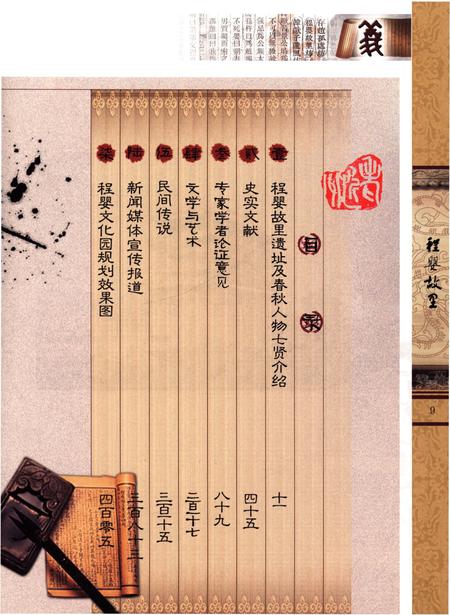 義
目录
壹 程婴故里遗址及春秋人物七贤介绍 十一
贰 史实文献 四十五
叁 专家学者论证意见 八十九
肆 文学与艺术 二百十七
伍 民间传说 三百十五
陆 新闻媒体宣传报道 三百八十三
柒 程婴文化园规划效果图 四百零五
程婴故里
9